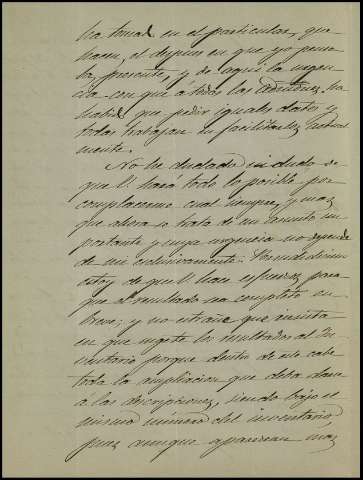 ha tomado en el particular, que
hacen, el disponer en que yo pueda
presente, y de aquí la urgen
cia con que a todos los
habido que pedir iguales datos y
todos trabajan en facilitarlos
mente.
No he dudado ni dudo de
que V. hará todo lo posible por
complacerme cual siempre, y mas
que ahora se trata de un asunto im
portante y cuya urgencia no depende
de mi exclusivamente.
estoy de que V. hace esfuerzos para
que el resultado sea completo en
breve; y no extrañe que insista
en que sujete los resultados al In
ventario porque dentro de ese cabe
toda la ampliacion que deba darse
á las descripciones, siendo bajo el
mismo número del inventario,
pues aunque aparezcan mas